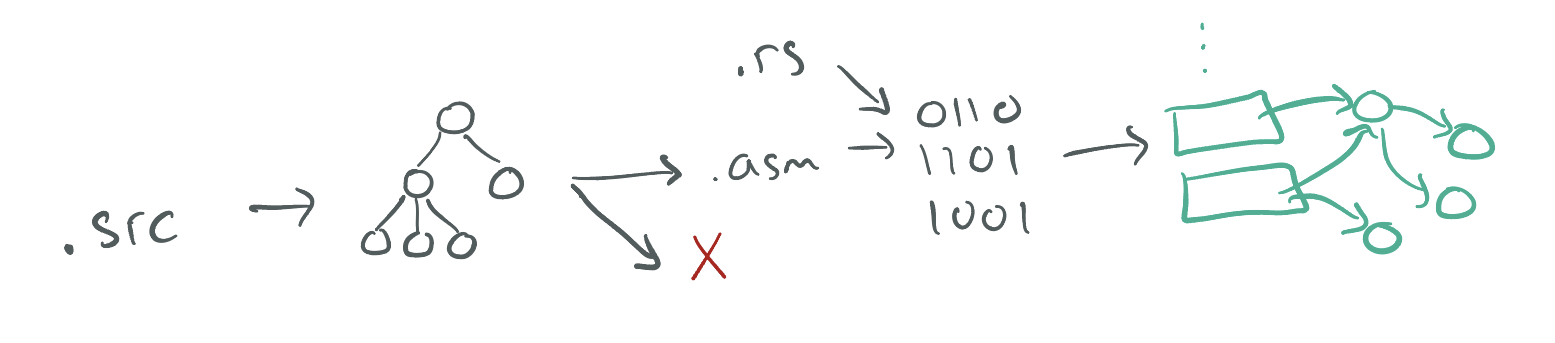 .src
.rs
.asm
X
0110
1101
1001